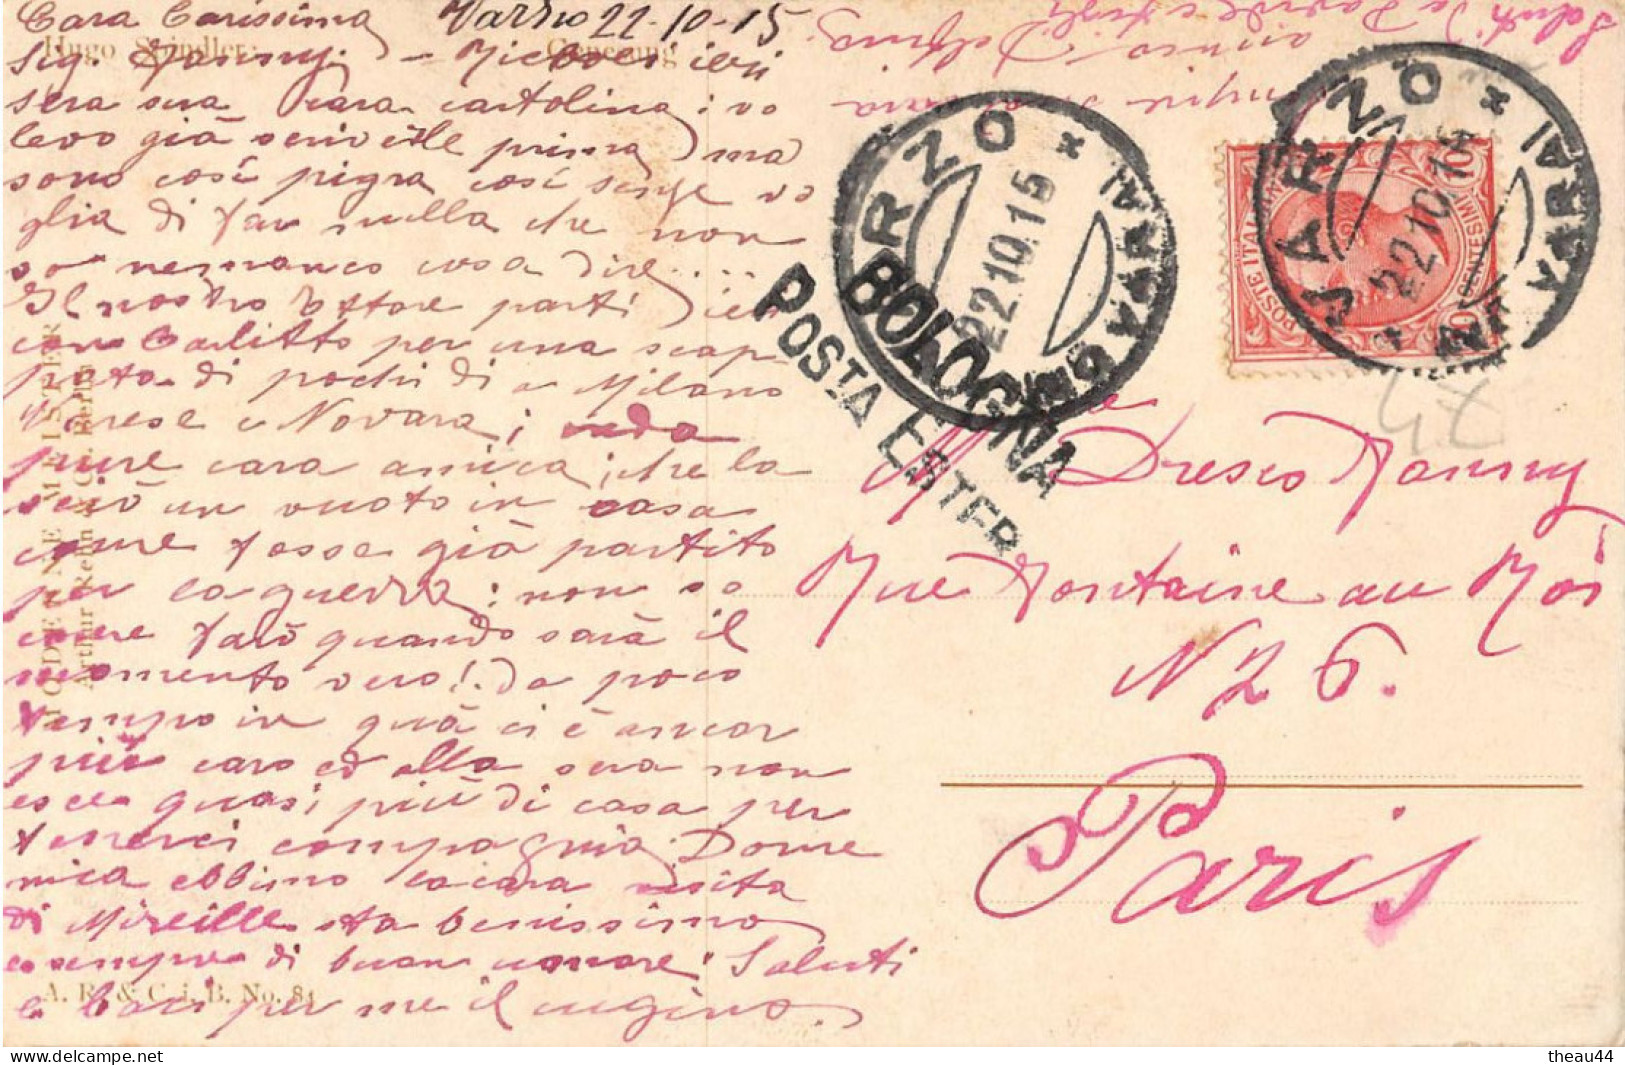 Cara Carissima Varzo 22-10-15
Sig. Fanny - Ricevei ieri
sera sua cara cartolina; vo
levo già scriverle prima, ma
sono così pigra così senza vo
glia di far nulla che non
so nemmanco cosa dire....
Il nostro Ettore partì ieri
con Carlitto per una scap
pata di pochi dì a Milano
Varese e Novara;
pure cara amica; che la
sciò un vuoto in casa
come fosse già partito
per la guerra: non so
come farò quando sarà il
momento vero! Da poco
tempo in quà ci è ancor
più caro ed alla sera non
esce quasi più di casa per
tenerci compagnia. Dome
nica ebbimo la cara visita
di Mireille sta benissimo
e sempre di buon umore: Saluti
e baci per me il cugino.
Hugo Spindler: Genesung
MODERNE MEISTER
Arthur Rehn & C. Berlin
A. R. & C. i. B. No. 84
VARZO * NOVARA
22.10.15
BOLOGNA
POSTA ESTER
POSTE ITALIANE
CENTESIMI 10
VARZO * NOVARA
22.10.15
47
Mme Dresco Fanny
Rue Fontaine au Roi
N 26.
Paris
theau44